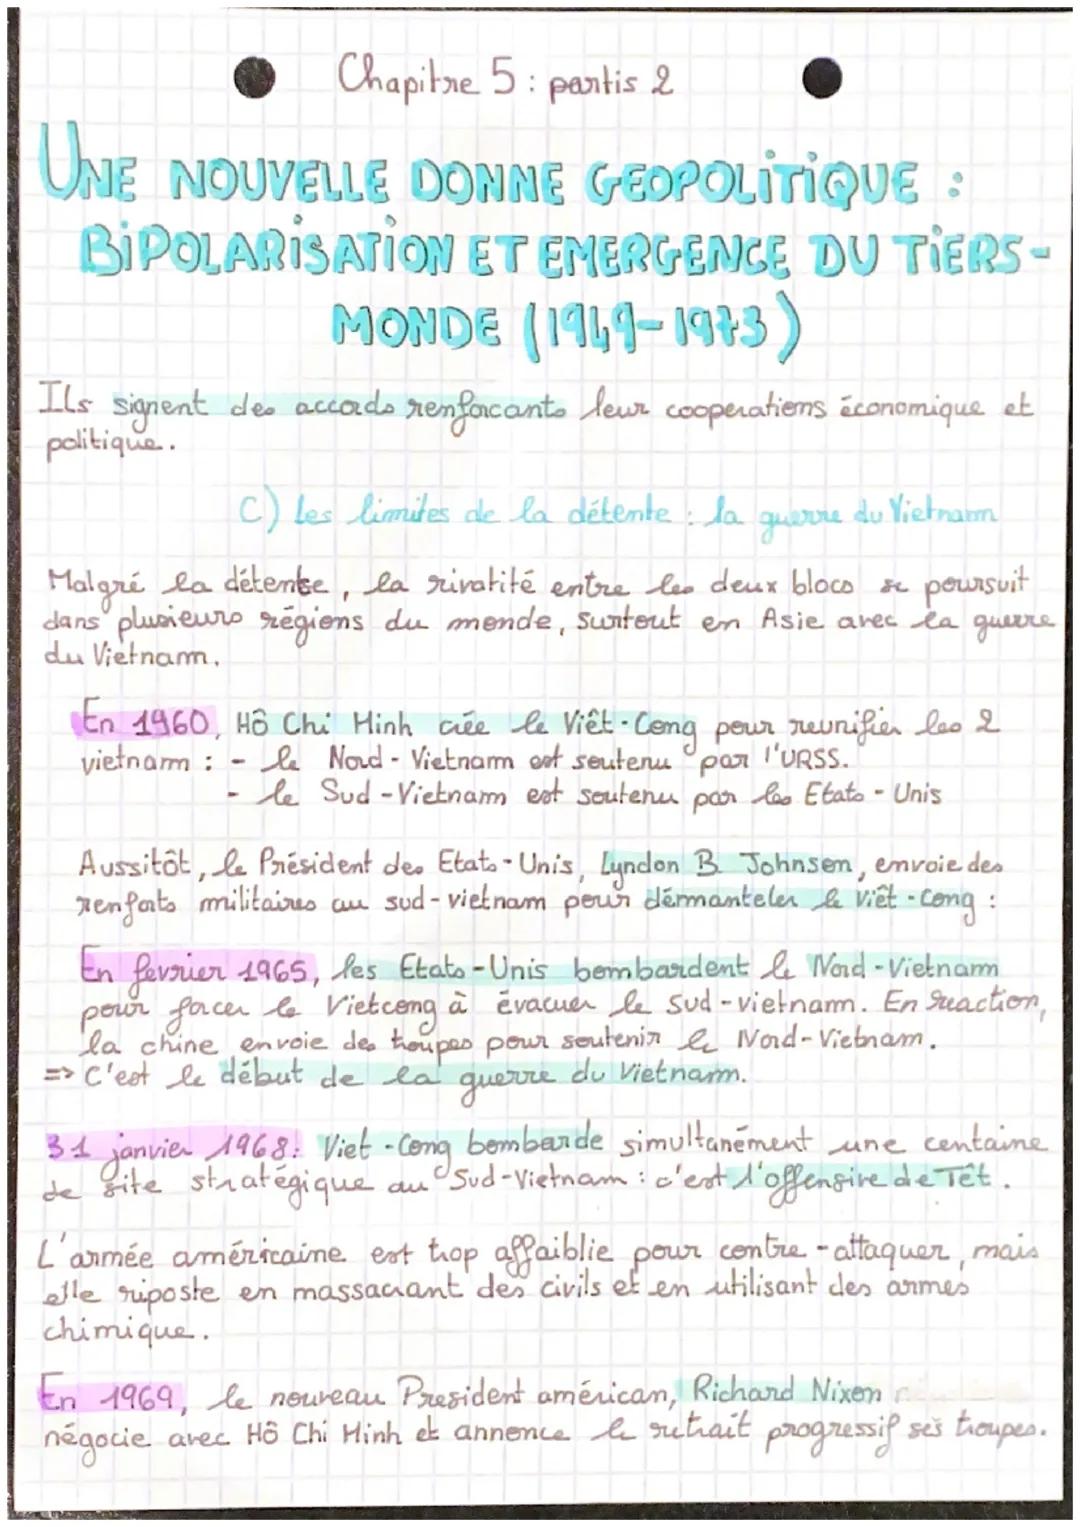 Chapitre 5 : partis 2
UNE NOUVELLE DONNE GEOPOLITIQUE :
BIPOLARISATION ET EMERGENCE DU TIERS-
MONDE (1949-1973)
Ils signent des accords renforcants leur cooperations économique et
politique.
C) les limites de la détente : la guerre du Vietnam
Malgré la détente, la rivalité entre les deux blocs se poursuit
dans plusieurs régions du monde, surtout en Asie avec la guerre
du Vietnam.
En 1960, Hô Chi Minh crée le Viêt-Cong pour reunifier les 2
vietnam : - le Nord-Vietnam est soutenu par l'URSS.
- le Sud-Vietnam est soutenu par les Etats-Unis
Aussitôt, le Président des Etats-Unis, Lyndon B. Johnson, envoie des
renforts militaires au sud-vietnam pour démanteler le Viêt-Cong :
En fevrier 1965, les Etats-Unis bombardent le Nord-Vietnam
pour forcer le Vietcong à évacuer le Sud-vietnam. En reaction,
la chine envoie des troupes pour soutenir le Nord-Vietnam.
=> C'est le début de la guerre du Vietnam.
31 janvier 1968: Viet-Cong bombarde simultanément une centaine
de site stratégique au Sud-Vietnam : c'est l'offensive de Têt.
L'armée américaine est trop affaiblie pour contre-attaquer, mais
elle riposte en massacrant des civils et en utilisant des armes
chimique.
En 1969, le nouveau President américan, Richard Nixon
négocie avec Hô Chi Minh et annonce le retrait progressif ses troupes.